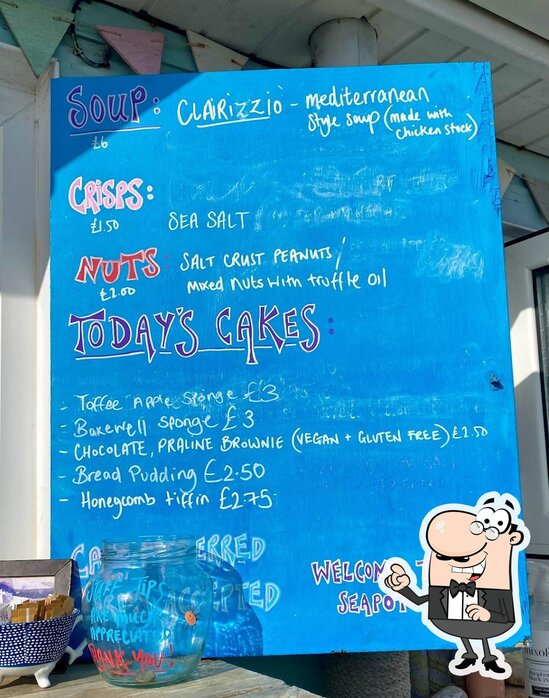 SOUP: CLAIRIZZIO - mediterranean
£6 style soup (made with
chicken stock)
CRISPS:
£1.50 SEA SALT
NUTS: SALT CRUST PEANUTS/
£2.00 mixed nuts with truffle oil
TODAY'S CAKES:
- Toffee Apple Sponge £3
- Bakewell Sponge £3
- CHOCOLATE, PRALINE BROWNIE (VEGAN + GLUTEN FREE) £2.50
- Bread Pudding £2.50
- Honeycomb tiffin £2.75
WELCOM
SEAPO
TIPS
ARE MUCH
APPRECIATE
THANK YOU!